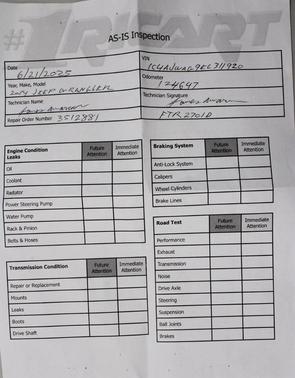 #TRICART
AS-IS Inspection
Date
6/21/2025
Year, Make, Model
JEEP WRANGLER
Technician Name
Repair Order Number 3512881
VIN
Odometer
124647
Technician Signature
Engine Condition
Leaks
Future Attention
Immediate Attention
Oil
Coolant
Radiator
Power Steering Pump
Water Pump
Rack & Pinion
Belts & Hoses
Transmission Condition
Future Attention
Immediate Attention
Repair or Replacement
Mounts
Leaks
Boots
Drive Shaft
Braking System
Future Attention
Immediate Attention
Anti-Lock System
Calipers
Wheel Cylinders
Brake Lines
Road Test
Future Attention
Immediate Attention
Performance
Exhaust
Transmission
Noise
Drive Axle
Steering
Suspension
Ball Joints
Brakes